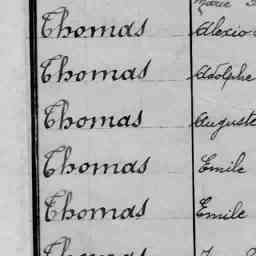 Marie
Thomas Alexio
Thomas Adolphe
Thomas Auguste
Thomas Emile
Thomas Emile
Thomas